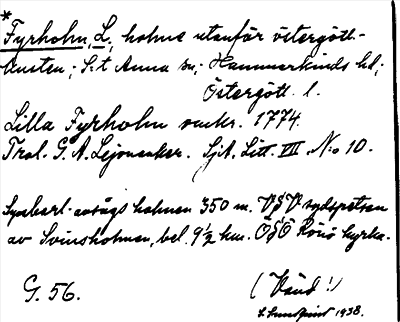 *
Fyrholm, L., holme utanför östergött.-
kusten; S:t Anna sn; Hammarkinds hd;
Östergött. l.
Lilla Fyrholm omkr. 1774.
Trol. G. A. Lejonanker. SjA, Litt. VII No 10.
Synbarl. avsågs holmen 350 m. VgV sydspetsen
av Svinsholmen, bel. 9½ km. ÖgÖ Rönö kyrka.
G. 56. (Vänd!)
S. Lundqvist 1938.